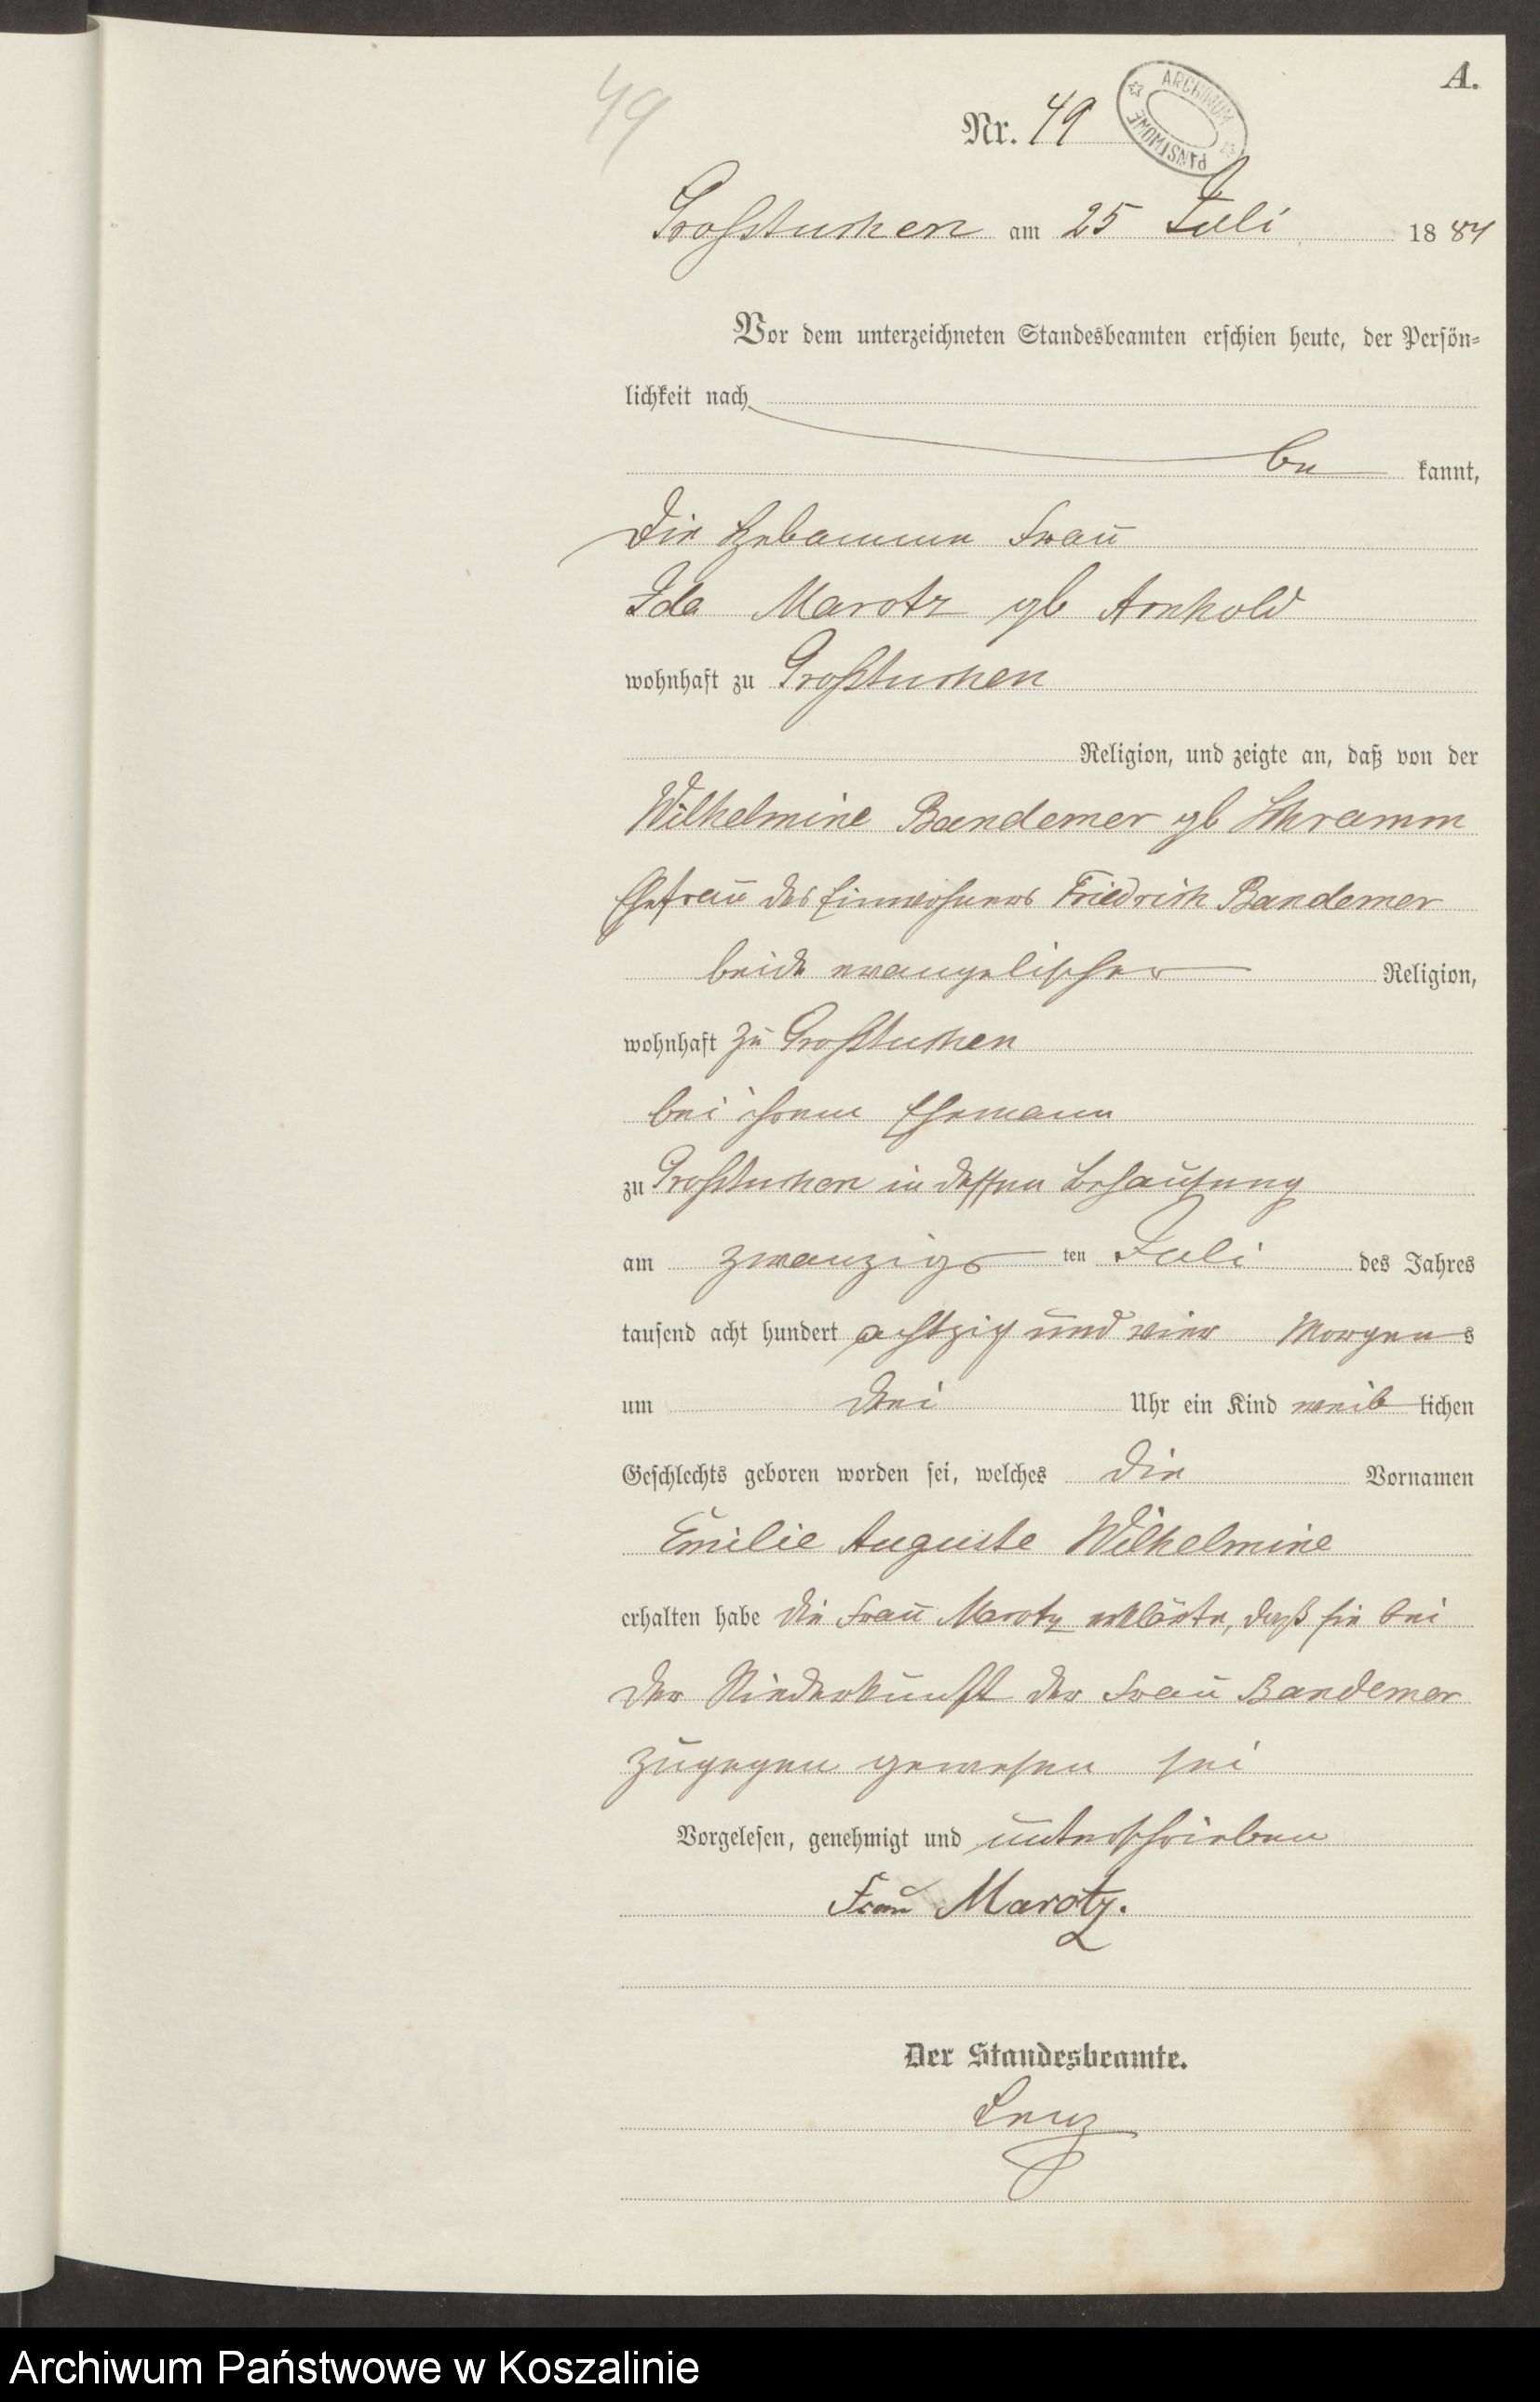 A.
49
Nr. 49
ARCHIWUM PAŃSTWOWE
Großtuchen am 25 Juli 1884
Vor dem unterzeichneten Standesbeamten erschien heute, der Persön=
lichkeit nach
be kannt,
die Hebamme Frau
Ida Marotz gb Arnhold
wohnhaft zu Großtuchen
Religion, und zeigte an, daß von der
Wilhelmine Bandemer gb Schramm
Ehefrau des Einwohners Friedrich Bandemer
beide evangelischer Religion,
wohnhaft zu Großtuchen
bei ihrem Ehemann
zu Großtuchen in dessen Behausung
am zwanzigs ten Juli des Jahres
tausend acht hundert achtzig und vier Morgens
um drei Uhr ein Kind weib lichen
Geschlechts geboren worden sei, welches die Vornamen
Emilie Auguste Wilhelmine
erhalten habe die Frau Marotz erklärte, daß sie bei
der Niederkunft der Frau Bandemer
zugegen gewesen sei
Vorgelesen, genehmigt und unterschrieben
Frau Marotz.
Der Standesbeamte.
Lenz
Archiwum Państwowe w Koszalinie